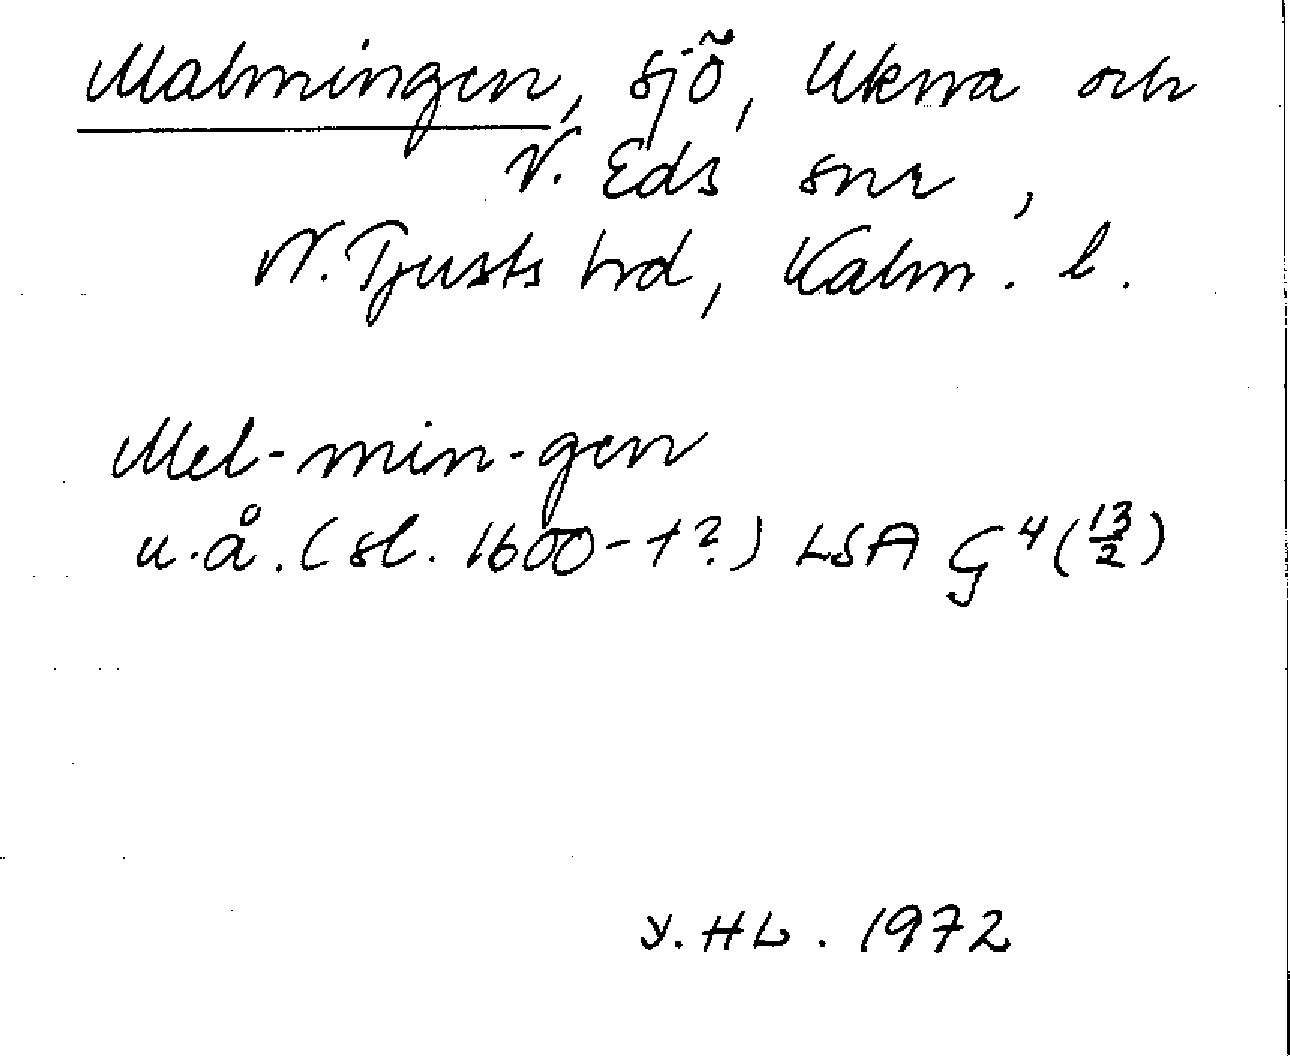 Malmingen, sjö, Ukna och
V. Eds snr,
N. Tjusts hrd, Kalm. l.
Mel-min-gen
u.å. (sl. 1600-t?) LSA G⁴ (13/2)
Y. HL. 1972